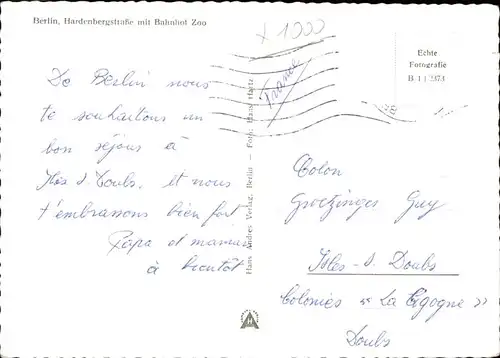 Berlin, Hardenbergstraße mit Bahnhof Zoo
x 1000
Echte
Fotografie
B 1 1 2373
France
De Berlin nous
te souhaitons un
bon séjour à
Isles s. Doubs. et nous
t'embrassons bien fort
Papa et maman
à bientôt
Hans Andres Verlag, Berlin - Foto: Hans Hartz
Colon
Groetzinger Guy
Isles-s. Doubs
Colonies « La Cigogne »
Doubs